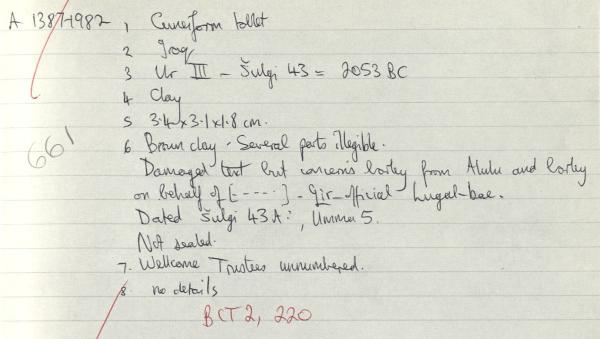 A 1387-1982 1 Cuneiform tablet
2 Iraq
3 Ur III - Šulgi 43 = 2053 BC
4 Clay
5 3.4 x 3.1 x 1.8 cm.
661
6 Brown clay. Several parts illegible.
Damaged text but concerns barley from Alulu and barley
on behalf of [----] - gìr-official Lugal-bae.
Dated Šulgi 43A:, Umma 5.
Not sealed.
7. Wellcome Trustees unnumbered.
8. no details
BCT 2, 220